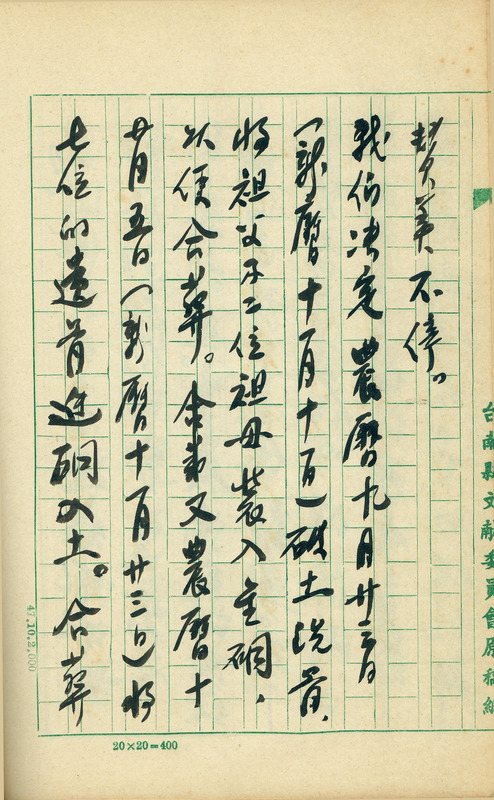 贊美不停。
我们决定農曆九月廿三日
(新曆十一月十一日)破土洗骨,
將祖父及二位祖母裝入金硐,
以便合葬。合葬又農曆十
月五日(新曆十一月廿三日)將
七位的遺骨進硐入土。合葬
台南縣文献委員會原稿紙
20×20=400
47.10.2,000